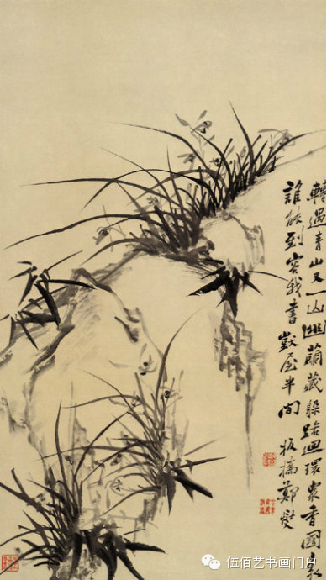 轉過青山又一山幽蘭藏躲路迴環眾香國裏
誰能到容我書獃屋半間 板橋鄭燮
伍佰艺书画门户